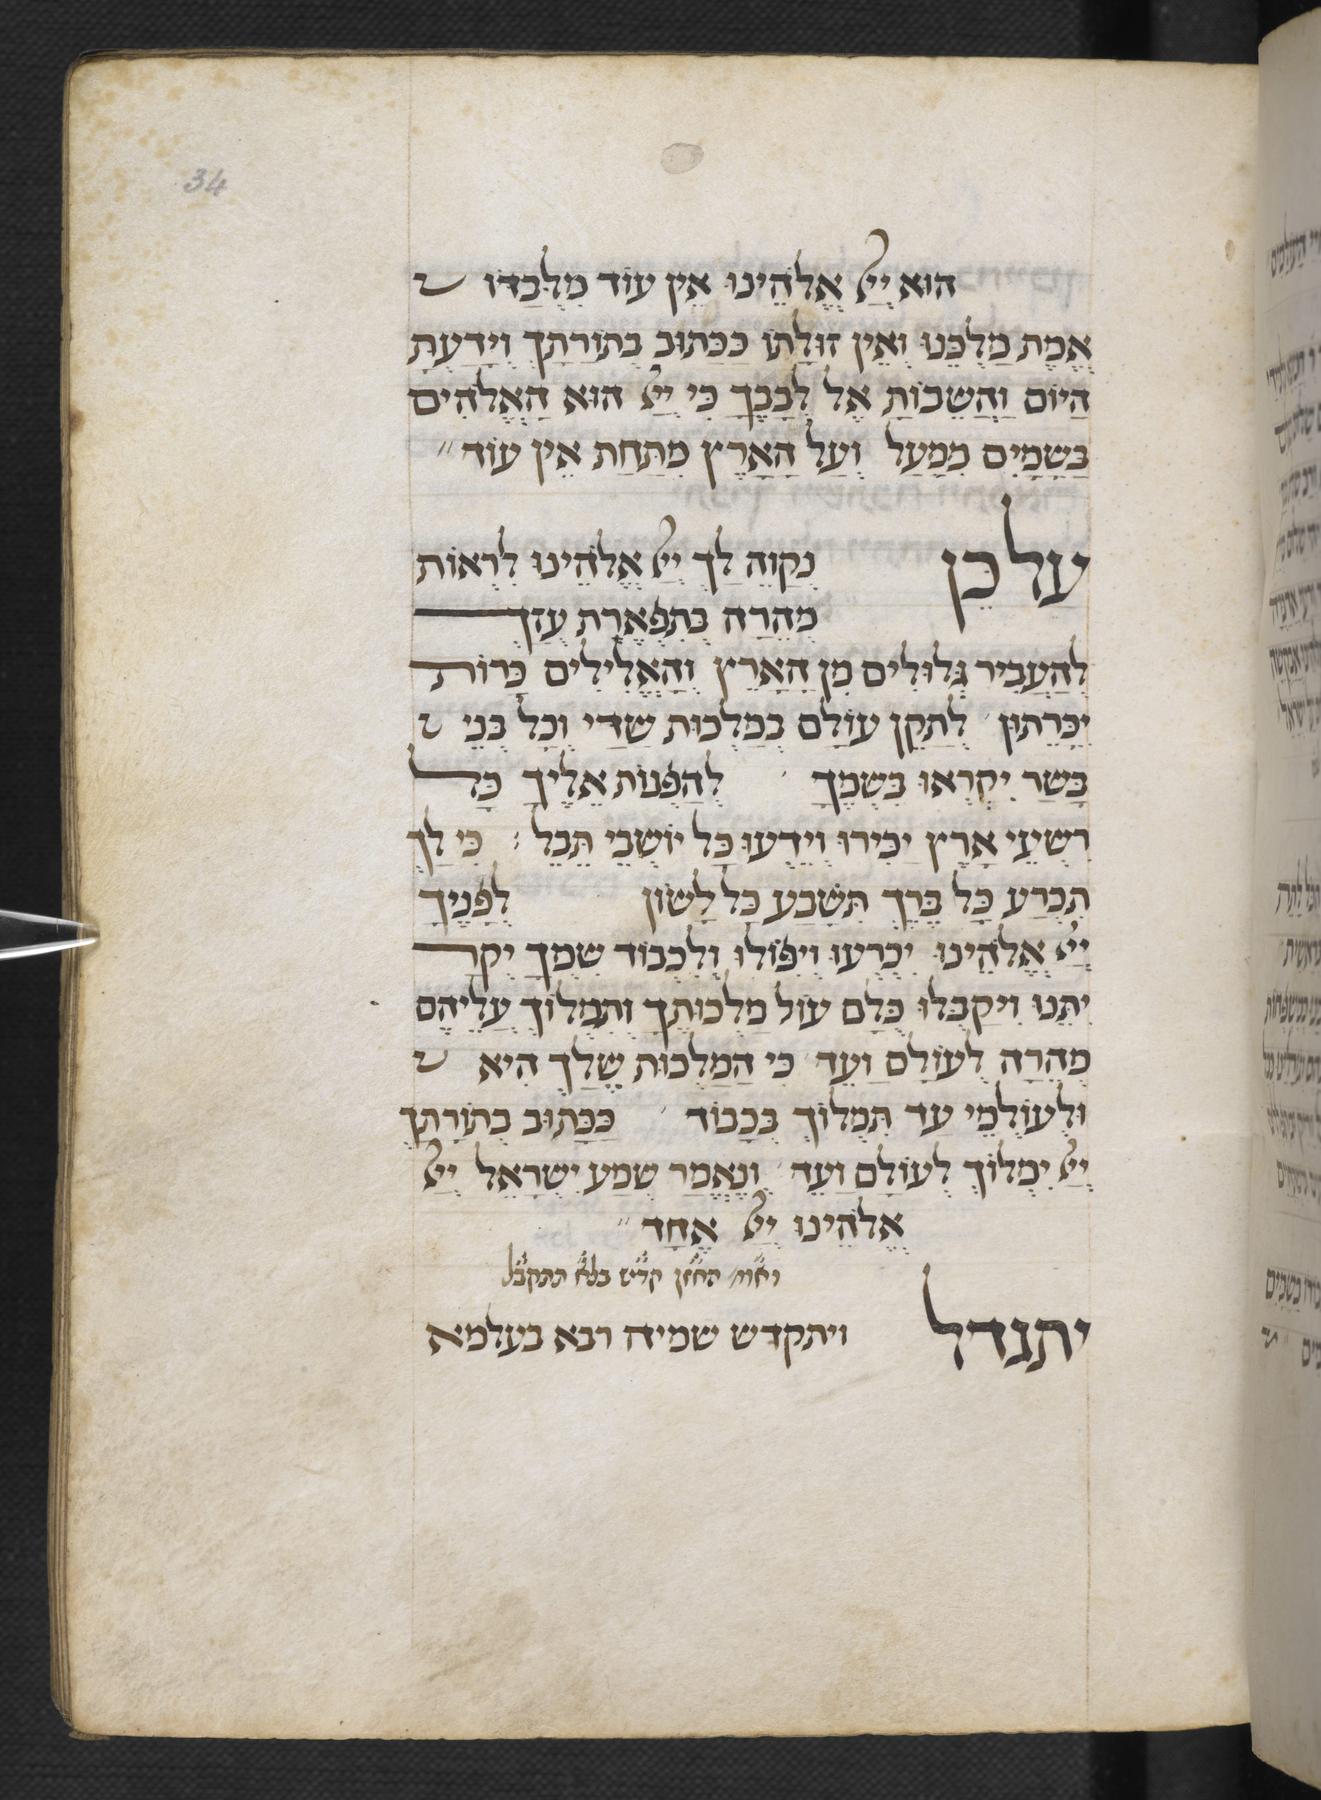 34
הוּא יְיָ אֱלֹהֵינוּ אֵין עוֹד מִלְבַדּוֹ
אֱמֶת מַלְכֵּנוּ וְאֵין זוּלָתוֹ כַּכָּתוּב בְּתוֹרָתָךְ וְיָדַעְתָּ
הַיּוֹם וַהֲשֵׁבוֹתָ אֶל לְבָבֶךָ כִּי יְיָ הוּא הָאֱלֹהִים
בַּשָּׁמַיִם מִמַּעַל וְעַל הָאָרֶץ מִתַּחַת אֵין עוֹד
עַל כֵּן נְקַוֶּה לְךָ יְיָ אֱלֹהֵינוּ לִרְאוֹת
מְהֵרָה בְּתִפְאֶרֶת עֻזֶּךְ
לְהַעֲבִיר גִּלּוּלִים מִן הָאָרֶץ וְהָאֱלִילִים כָּרוֹת
יִכָּרֵתוּן לְתַקֵּן עוֹלָם בְּמַלְכוּת שַׁדַּי וְכָל בְּנֵי
בָשָׂר יִקְרְאוּ בִשְׁמֶךָ לְהַפְנוֹת אֵלֶיךָ כָּל
רִשְׁעֵי אָרֶץ יַכִּירוּ וְיֵדְעוּ כָּל יוֹשְׁבֵי תֵבֵל כִּי לְךָ
תִכְרַע כָּל בֶּרֶךְ תִּשָּׁבַע כָּל לָשׁוֹן לְפָנֶיךָ
יְיָ אֱלֹהֵינוּ יִכְרְעוּ וְיִפּוֹלוּ וְלִכְבוֹד שִׁמְךָ יְקָר
יִתֵּנוּ וִיקַבְּלוּ כֻלָּם עוֹל מַלְכוּתֶךָ וְתִמְלוֹךְ עֲלֵיהֶם
מְהֵרָה לְעוֹלָם וָעֶד כִּי הַמַּלְכוּת שֶׁלְּךָ הִיא
וּלְעוֹלְמֵי עַד תִּמְלוֹךְ בְּכָבוֹד כַּכָּתוּב בְּתוֹרָתֶךָ
יְיָ יִמְלוֹךְ לְעוֹלָם וָעֶד וְנֶאֱמַר שְׁמַע יִשְׂרָאֵל יְיָ
אֱלֹהֵינוּ יְיָ אֶחָד
ואומ׳ החזן קדיש בלא תתקבל
יתגדל ויתקדש שמיה רבא בעלמא